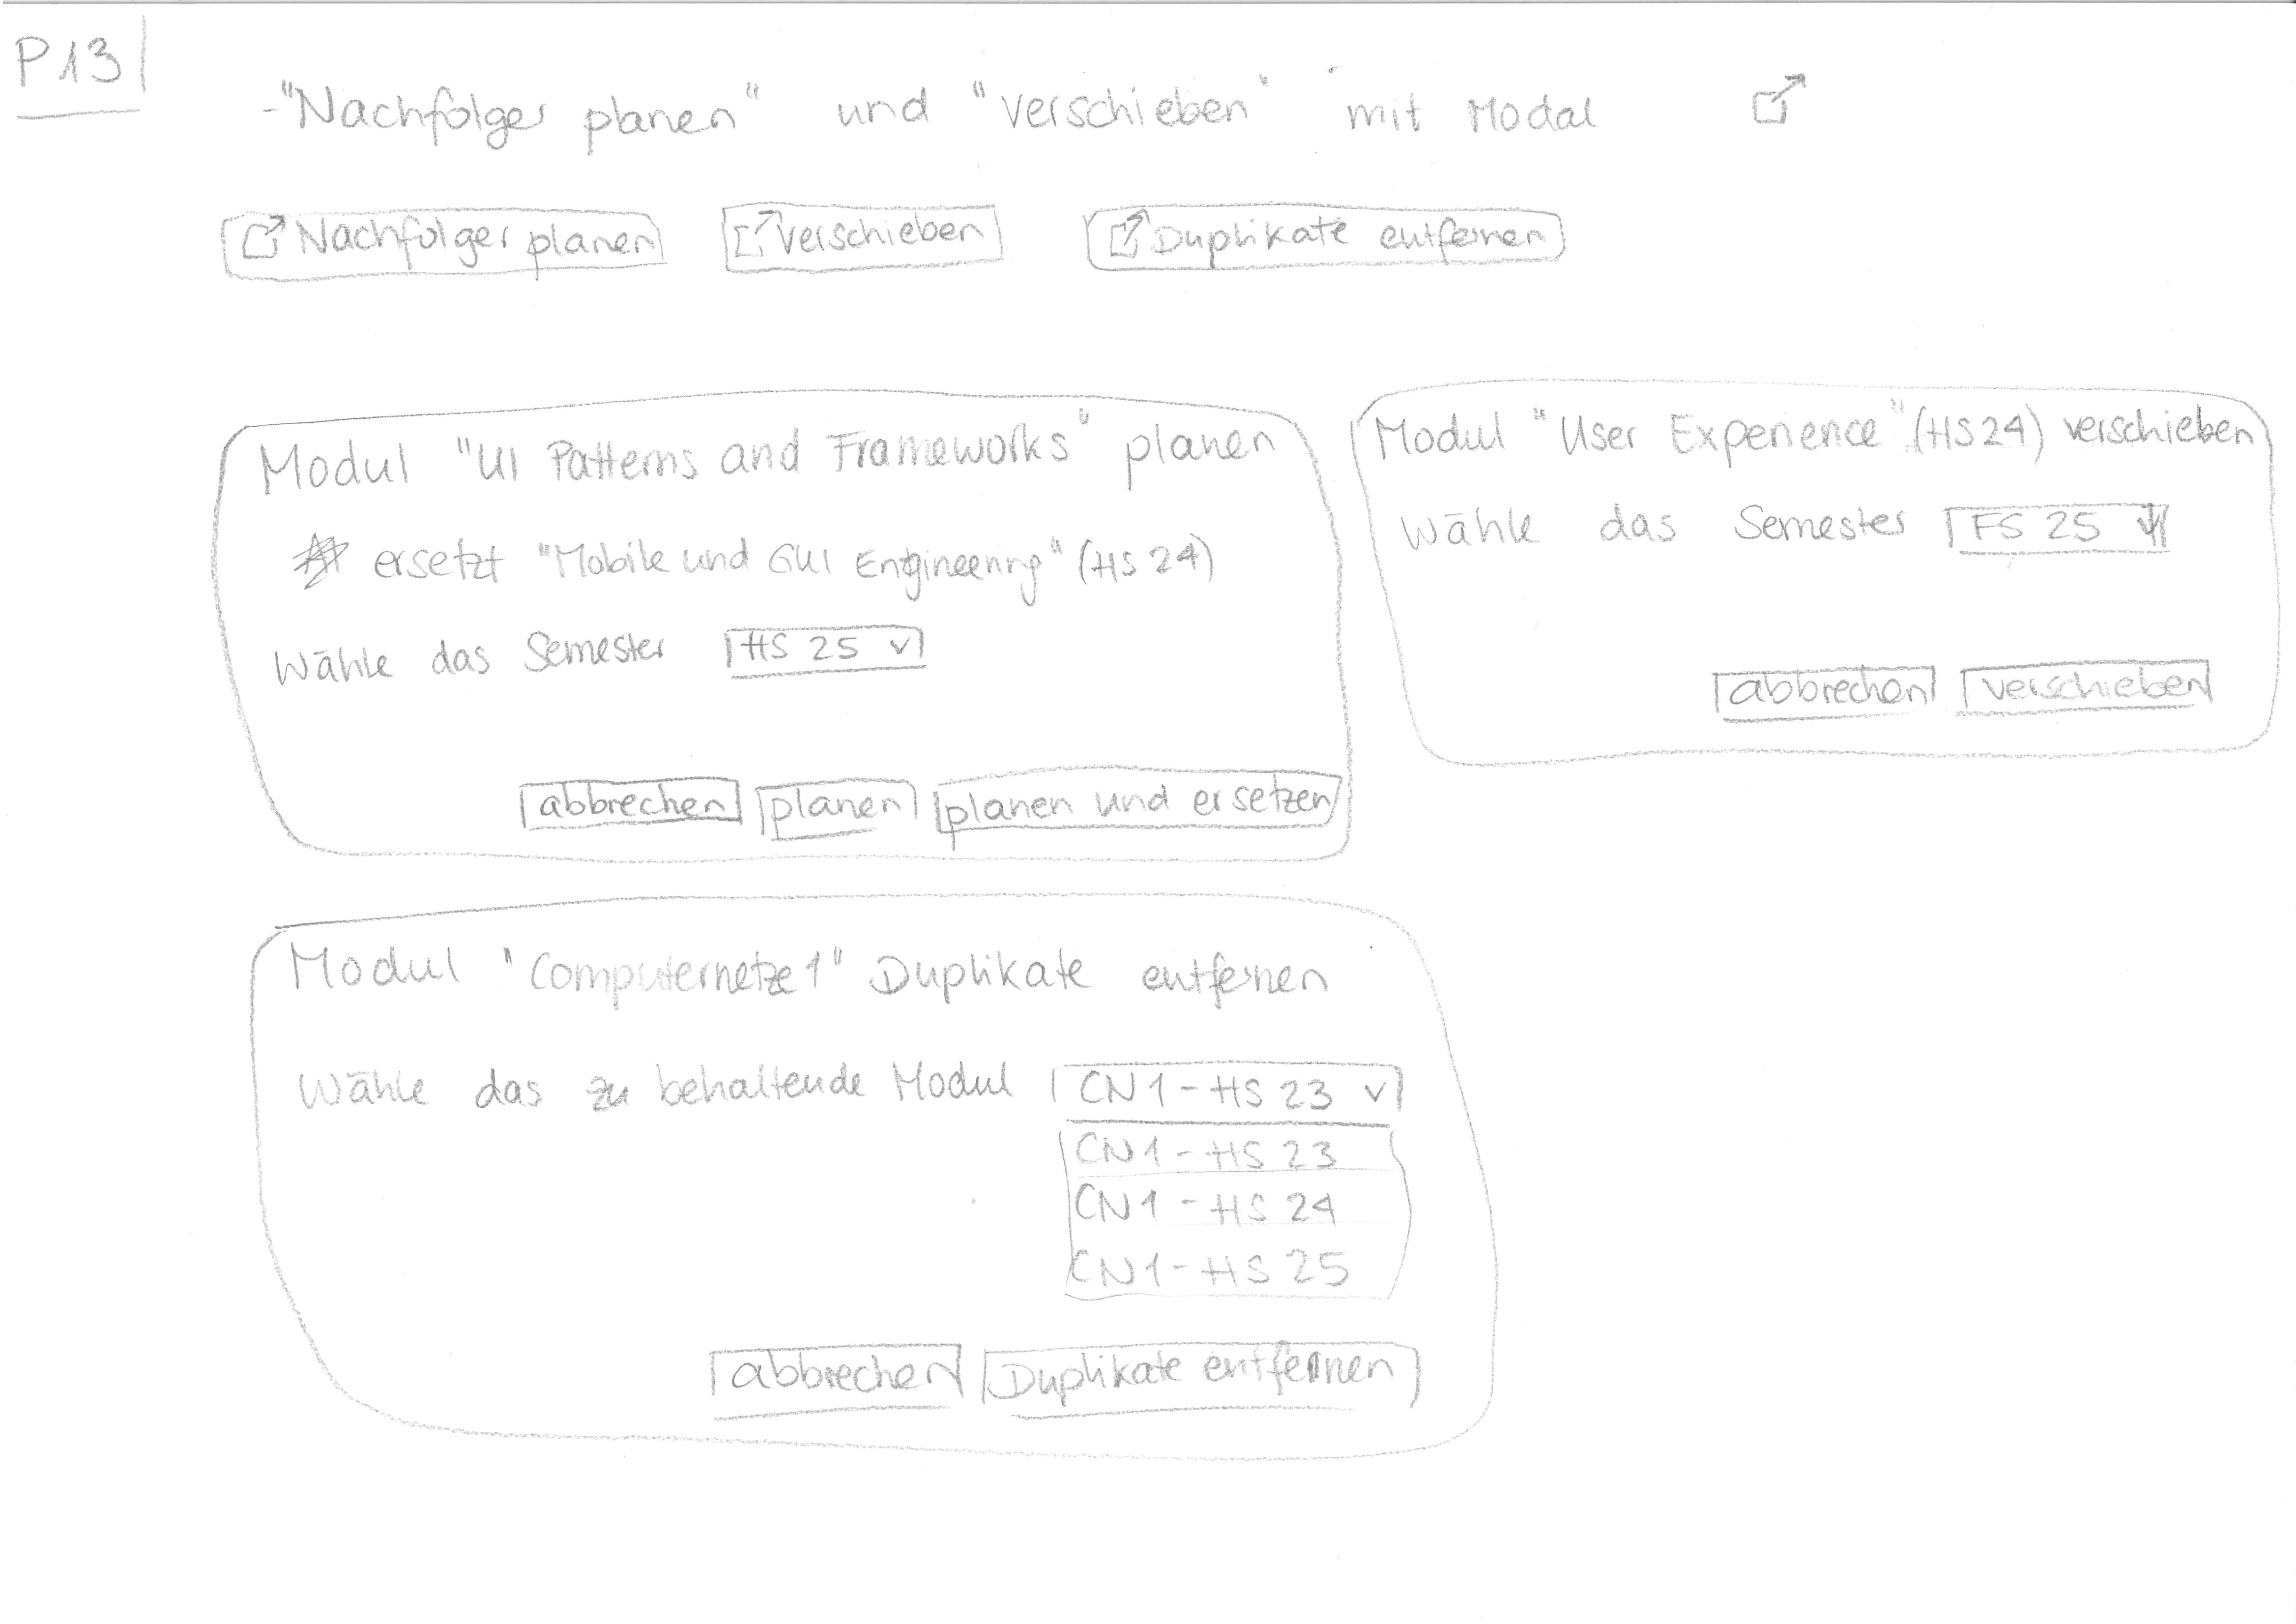 P13
-"Nachfolger planen" und "verschieben" mit Modal
Nachfolger planen verschieben Duplikate entfernen
Modul "UI Patterns and Frameworks" planen
ersetzt "Mobile und GUI Engineering" (HS 24)
Wähle das Semester HS 25
abbrechen planen planen und ersetzen
Modul "User Experience" (HS24) verschieben
Wähle das Semester FS 25
abbrechen verschieben
Modul "Computernetze 1" Duplikate entfernen
Wähle das zu behaltende Modul CN1 - HS 23
CN1 - HS 23
CN1 - HS 24
CN1 - HS 25
abbrechen Duplikate entfernen